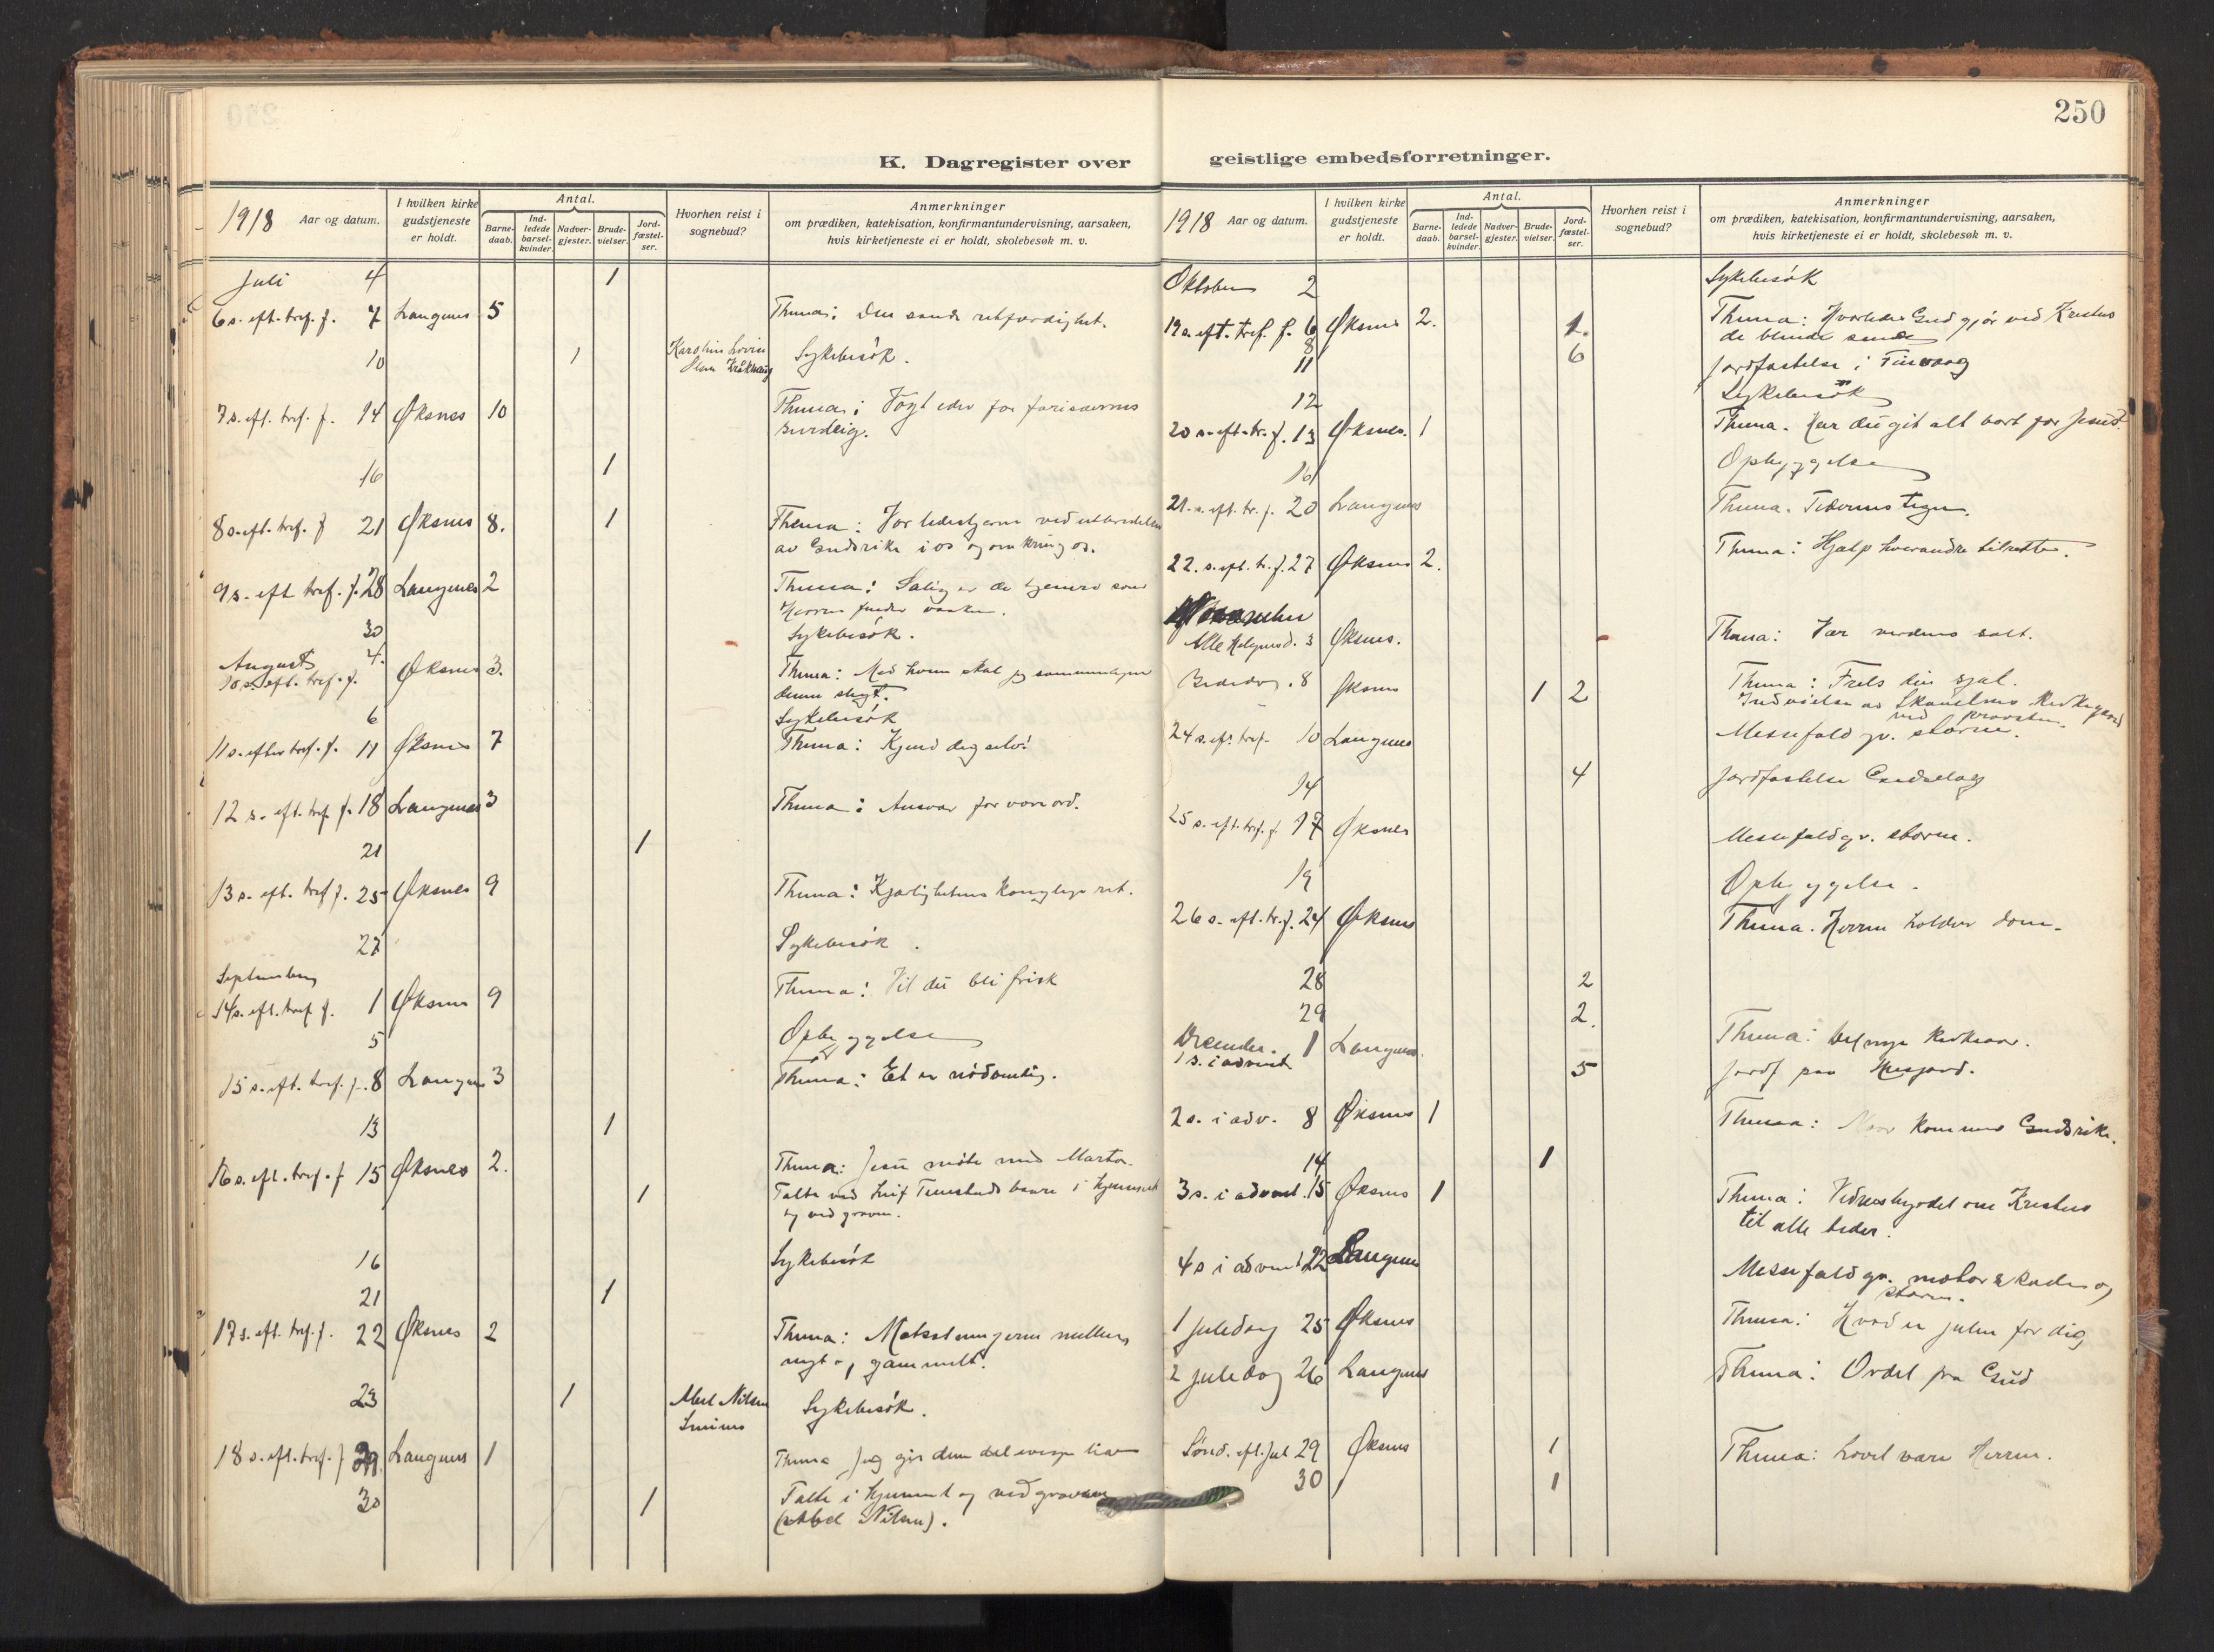 250
K. Dagregister over geistlige embedsforretninger.
1918 Aar og datum.
I hvilken kirke gudstjeneste er holdt.
Antal.
Barne-daab.
Ind-ledede barsel-kvinder.
Nadver-gjester.
Brude-vielser.
Jord-fæstel-ser.
Hvorhen reist i sognebud?
Anmerkninger
om prædiken, katekisation, konfirmantundervisning, aarsaken,
hvis kirketjeneste ei er holdt, skolebesøk m. v.
Juli 4 1
6 s. eft. tref. f. 7 Langenes 5 Thema: Den sande retfærdighet.
10 1 Karoline Lovise Olsen Sykebesøk.
7 s. eft. tref. f. 14 Øksnes 10 Thema: Vogt eder for farisæernes
surdeig.
16 1
8 s. eft. tref. f 21 Øksnes 8. 1 Thema: Vor ledestjerne ved utbredelsen
av Gudsrike i os og omkring os.
9 s. eft tref. f. 28 Langenes 2 Thema: Salig er de tjenere som
Herren finder vaakne.
30 Sykebesøk.
August 4.
10 s. eft. tref. f. Øksnes 3. Thema: Med hvem skal jeg sammenligne
denne slegt.
6 Sykebesøk
11 s. efter tref. f. 11 Øksnes 7 Thema: Kjend dig selv!
12 s. eft. tref. f. 18 Langenes 3 Thema: Ansvar for vore ord.
21 1
13 s. eft. tref f. 25 Øksnes 9 Thema: Kjærlighetens kongelige ret.
27 Sykebesøk.
September
14 s. eft. tref. f. 1 Øksnes 9 Thema: Vil du bli frisk
5 Opbyggelse
15 s. eft. tref. f. 8 Langenes 3 Thema: Et er nødvendig.
13 1
16 s. eft. tref. f 15 Øksnes 2. Thema: Jesu møte med Marta.
1 Talte ved Leif baare i hjemmet
og ved graven.
16 Sykebesøk
21 1
17 s. eft. tref. f. 22 Øksnes 2 Thema: Motsetningerne mellem
nyt og gammelt.
23 1 Abel Nilsen Sykebesøk.
18 s. eft. tref. f 29. Langenes 1 Thema Jeg gir dem det evige liv
30 1 Talte i hjemmet og ved graven
(Abel Nilsen).
1918 Aar og datum.
I hvilken kirke gudstjeneste er holdt.
Antal.
Barne-daab.
Ind-ledede barsel-kvinder.
Nadver-gjester.
Brude-vielser.
Jord-fæstel-ser.
Hvorhen reist i sognebud?
Anmerkninger
om prædiken, katekisation, konfirmantundervisning, aarsaken,
hvis kirketjeneste ei er holdt, skolebesøk m. v.
Oktober 2 Sykebesøk
19 s. eft. tref. f. 6 Øksnes 2. 1. Thema: Hvorledes Gud gjør ved Kristus
de blinde seende
8 6 Jordfæstelse i Tinvaag
11 Sykebesøk
12
20 s. eft. tr. f. 13 Øksnes. 1 Thema. Har du git alt bort for Jesus?
16 Opbyggelse
21. s. eft. tr. f. 20 Langenes Thema. Tidernes tegn.
22. s. eft. tr. f. 27 Øksnes 2. Thema: Hjælp hverandre tilrette.
November
Alle Helgensd. 3 Øksnes. Thema: Vær verdens salt.
Bededag. 8 Øksnes 1 2 Thema: Frels din sjæl.
Indvielse av Skavelnes Kirkegaard
ved provsten.
24 s. eft. tref. 10 Langenes Messefald gr. storm.
14 4 Jordfæstelse
25 s. eft. tref. f. 17 Øksnes Messefald gr. storm.
19 Opbyggelse.
26 s. eft. tr. f. 24 Øksnes Thema. Herren holder dom.
28 2
29 2.
December. 1 Langenes. Thema: Det nye kirkeaar.
1 s. i advent 5 Jordf paa
2 s. i adv. 8 Øksnes 1 Thema: Naar kommer Gudsrike.
14 1
3 s. i advent. 15 Øksnes 1 Thema: Vidnesbyrdet om Kristus
til alle tider.
4 s i advent 22 Langenes Messefald gr. motorskade og
storm.
1 juledag 25 Øksnes Thema: Hvad er julen for dig
2 juledag 26 Langenes Thema: Ordet fra Gud
Sønd. eft. Jul 29 Øksnes 1 Thema: Lovet være Herren.
30 1